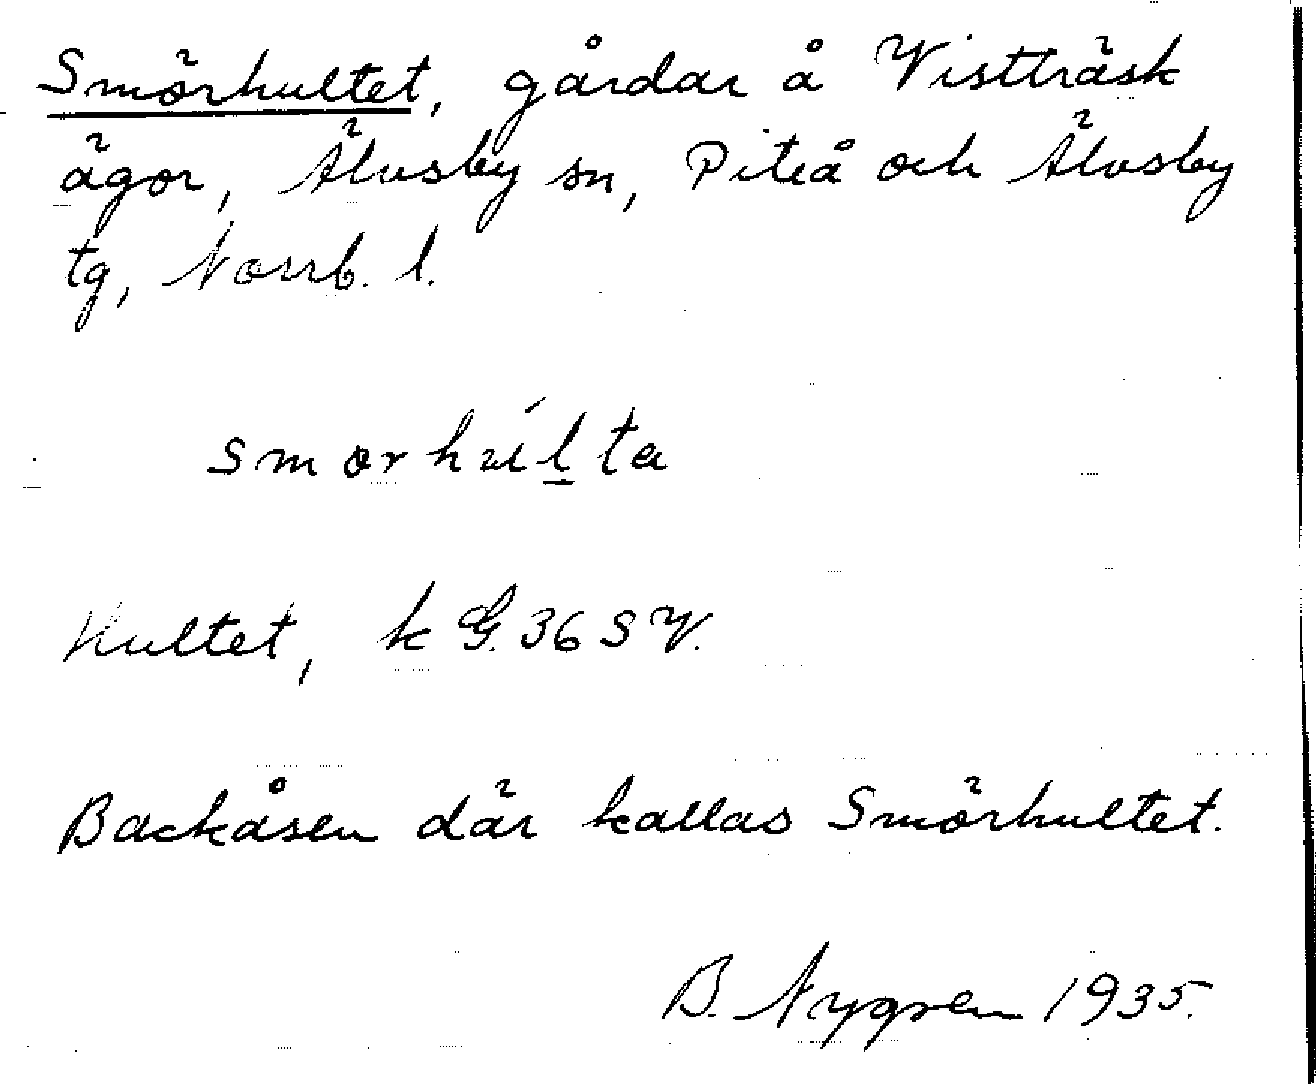 Smörhultet, gårdar å Vistträsk
ägor, Älvsby sn, Piteå och Älvsby
tg, Norrb. l.
smorhúlta
Hultet, k G. 36 S V.
Backåsen där kallas Smörhultet.
B. Nygren 1935.